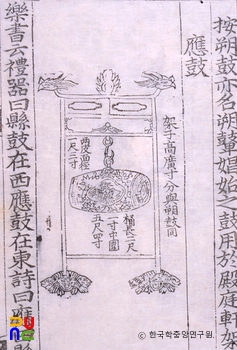 按朔鼓亦名朔鼙倡始之鼓用於殿庭軒架
應鼓
架子高廣寸分與朔鼓同
桶長一尺
寸中圍
五尺四寸
面徑
樂書云禮器曰縣鼓在西應鼓在東詩曰應
한국학중앙연구원